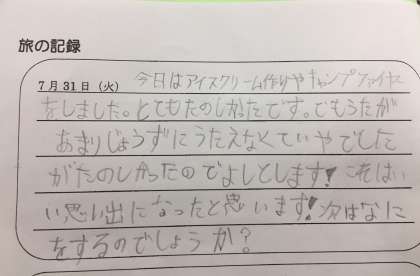 旅の記録
7月31日（火） 今日はアイスクリーム作りやキャンプファイヤー
をしました。とてもたのしかったです。でもうたが
あまりじょうずにうたえなくていやでした
がたのしかったのでよしとします! これはい
い思い出になったと思います! 次はなに
をするのでしょうか?